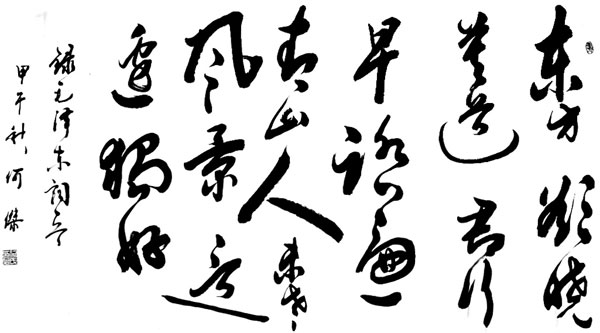 东方欲晓
莫道君行
早踏遍
青山人未老
风景这
边独好
录毛泽东词句
甲午秋何